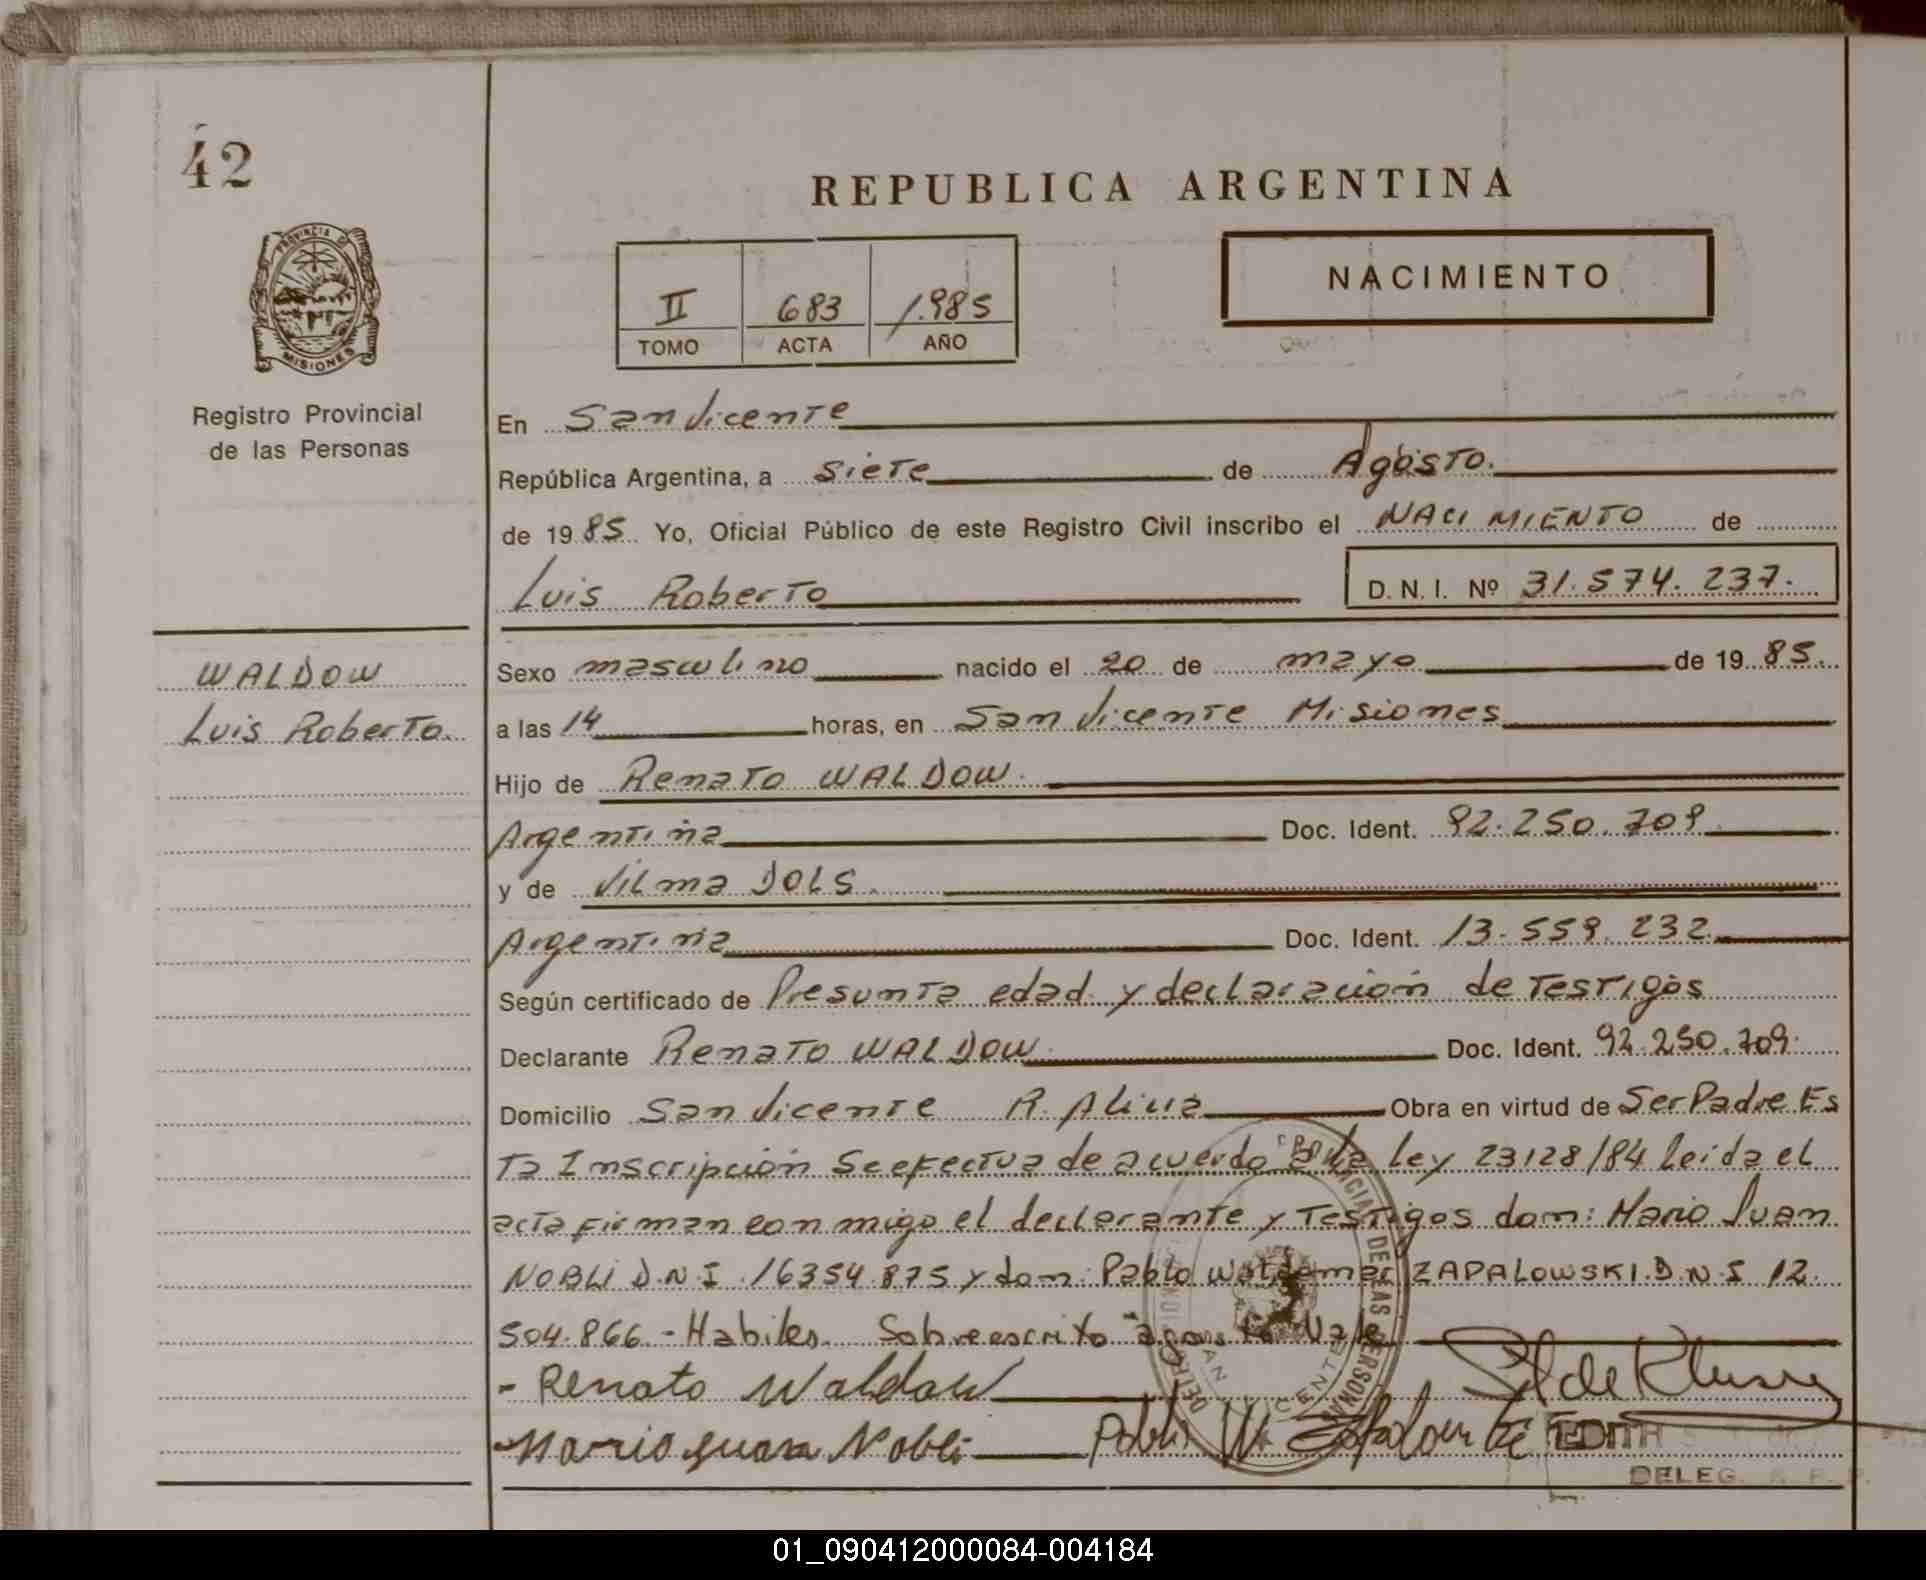 42
REPUBLICA ARGENTINA
PROVINCIA DE
MISIONES
II 683 1.985
TOMO ACTA AÑO
NACIMIENTO
Registro Provincial
de las Personas
WALDOW
Luis Roberto.
En San Vicente
República Argentina, a siete de Agosto.
de 1985 Yo, Oficial Público de este Registro Civil inscribo el NACIMIENTO de
Luis Roberto D. N. I. Nº 31.574.237.
Sexo masculino nacido el 20 de mayo de 1985.
a las 14 horas, en San Vicente Misiones
Hijo de Renato WALDOW.
Argentina Doc. Ident. 92.250.709
y de Vilma DOLS.
Argentina Doc. Ident. 13.559.232
Según certificado de Presunta edad y declaración de Testigos
Declarante Renato WALDOW Doc. Ident. 92.250.709.
Domicilio San Vicente Obra en virtud de Ser Padre Es
Ta Inscripción se efectua de acuerdo a la Ley 23128/84 leida el
acta firman conmigo el declarante y Testigos dom: Mario Juan
NOBLI D.N.I 16354.875 y dom: Pablo Waldemar ZAPALOWSKI. D.N.I 12.
504.866.- Habiles. Sobreescrito "agosto" Vale
- Renato Waldow
Mario Juan Nobli Pablo W
EDITH
DELEG. R. P.
01_090412000084-004184